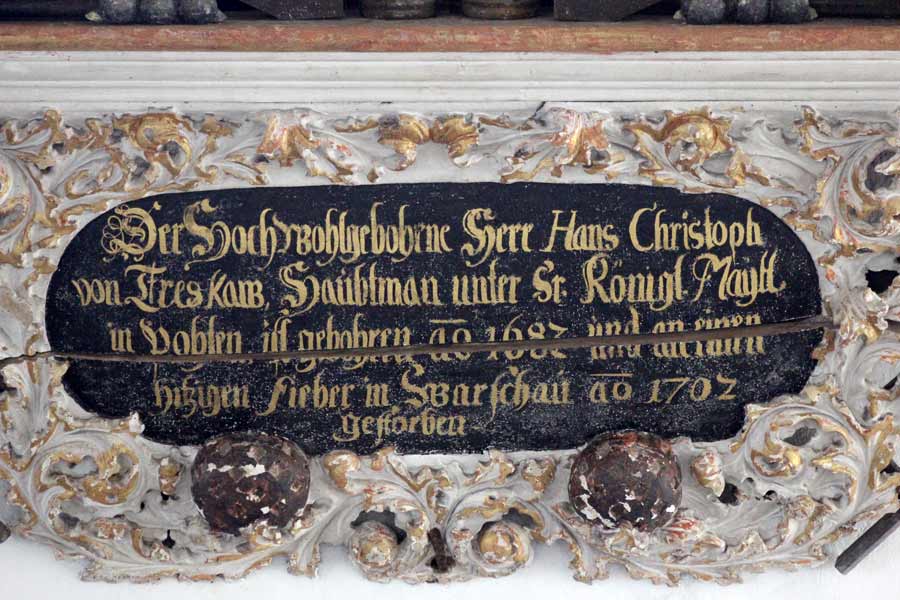 Der Hochwohlgebohrne Herr Hans Christoph
von Treskaw, Haubtman unter Sr. Königl Maytt
in Pohlen ist gebohren ao 1682 und an einen
hitzigen fieber in Warschau ao 1702
gestorben